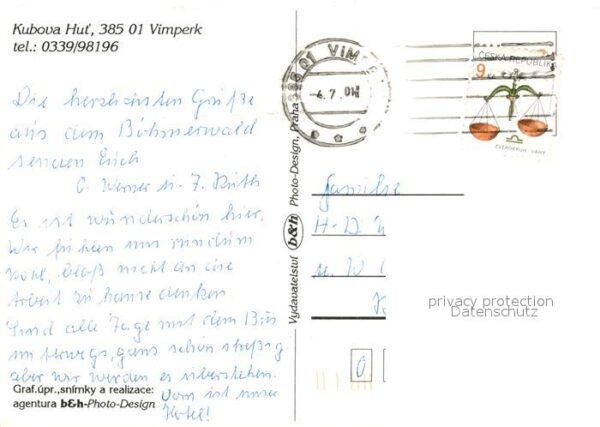 Kubova Huť, 385 01 Vimperk
tel.: 0339/98196
Die herzlichsten Grüße
aus dem Böhmerwald
senden Euch
C. Werner u. J. Ruth
Es ist wunderschön hier.
Wir fühlen uns rundum
wohl, bloß nicht an die
Arbeit zu hause denken
Sind alle Tage mit dem Bus
unterwegs, ganz schön stressig
aber wir werden es überstehen.
Vorn ist unser
Hotel!
Graf.úpr.,snímky a realizace:
agentura b&h-Photo-Design
Vydavatelství b&h Photo-Design, Praha
385 01 VIMPERK
-4.7.01
ČESKÁ REPUBLIKA
9
ZVĚROKRUH - VÁHY
Familie
H-D
privacy protection
Datenschutz